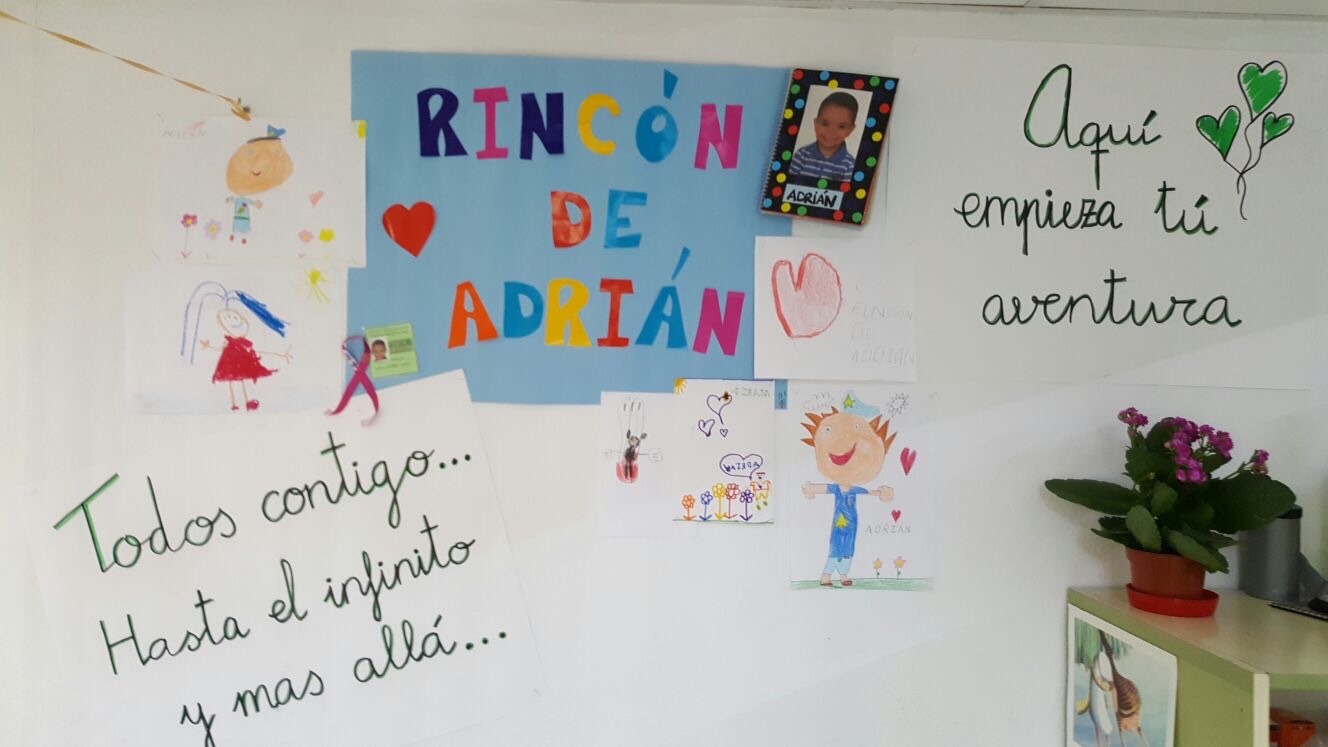 RINCÓN
DE
ADRIÁN
ADRIÁN
Aquí
empieza tú
aventura
ADRIÁN
RINCÓN
DE
ADRIÁN
Todos contigo...
Hasta el infinito
y mas allá...
ADRIÁN